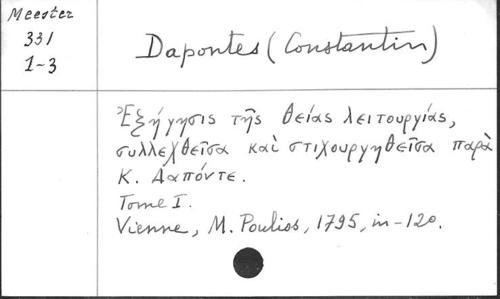 Meester
331
1-3
Dapontes (Constantin)
Ἐξήγησις τῆς θείας λειτουργίας,
συλλεχθεῖσα καὶ στιχουργηθεῖσα παρὰ
Κ. Δαπόντε.
Tome I.
Vienne, M. Poulios, 1795, in-12o.